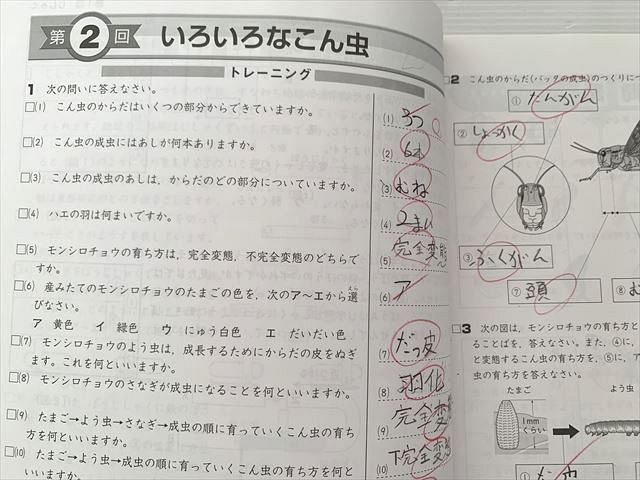 第2回 いろいろなこん虫
トレーニング
1 次の問いに答えなさい。
□(1) こん虫のからだはいくつの部分からできていますか。
□(2) こん虫の成虫にはあしが何本ありますか。
□(3) こん虫の成虫のあしは、からだのどの部分についていますか。
□(4) ハエの羽は何まいですか。
□(5) モンシロチョウの育ち方は、完全変態、不完全変態のどちらで
すか。
□(6) 産みたてのモンシロチョウのたまごの色を、次のア〜エから選
えら
びなさい。
ア 黄色 イ 緑色 ウ にゅう白色 エ だいだい色
□(7) モンシロチョウのよう虫は、成長するためにからだの皮をぬぎ
ます。これを何といいますか。
□(8) モンシロチョウのさなぎが成虫になることを何といいますか。
□(9) たまご→よう虫→さなぎ→成虫の順に育っていくこん虫の育ち
方を何といいますか。
□(10) たまご→よう虫→成虫の順に育っていくこん虫の育ち方を何と
いいますか。
(1) 3つ
(2) 6本
(3) むね
(4) 2まい
(5) 完全変態
(6) ア
(7) だっ皮
(8) 羽化
(9) 完全変
(10) 不完全変
□2 こん虫のからだ(バッタの成虫)のつくりに
① たんがん
② しょっかく
③ ふくがん
⑦ 頭
⑧ む
□3 次の図は、モンシロチョウの育ち方と
ることばを、答えなさい。また、④に、
と変態するこん虫の育ち方を、⑤に、
虫の育ち方を答えなさい。
たまご
よう虫
1mm
くらい
①